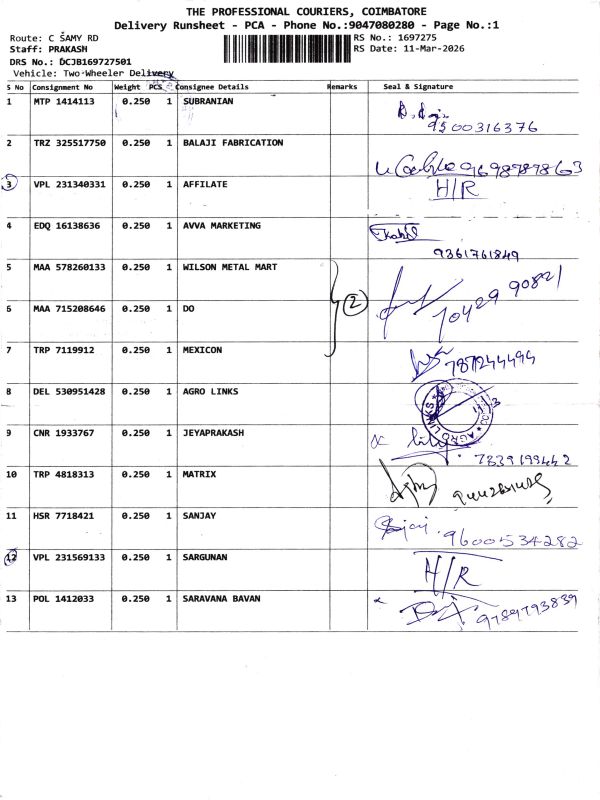 THE PROFESSIONAL COURIERS, COIMBATORE
Delivery Runsheet - PCA - Phone No.:9047080280 - Page No.:1
Route: C SAMY RD
RS No.: 1697275
Staff: PRAKASH
RS Date: 11-Mar-2026
DRS No.: DCJB169727501
Vehicle: Two-Wheeler Delivery
S No Consignment No Weight PCS Consignee Details Remarks Seal & Signature
1 MTP 1414113 0.250 1 SUBRANIAN
9500316376
2 TRZ 325517750 0.250 1 BALAJI FABRICATION
9698989863
3 VPL 231340331 0.250 1 AFFILATE H/R
4 EDQ 16138636 0.250 1 AVVA MARKETING
9361761849
5 MAA 578260133 0.250 1 WILSON METAL MART
2
6 MAA 715208646 0.250 1 DO 7042990821
7 TRP 7119912 0.250 1 MEXICON 787244494
8 DEL 530951428 0.250 1 AGRO LINKS AGRO LINKS
9 CNR 1933767 0.250 1 JEYAPRAKASH
10 TRP 4818313 0.250 1 MATRIX
11 HSR 7718421 0.250 1 SANJAY
9600534282
12 VPL 231569133 0.250 1 SARGUNAN H/R
13 POL 1412033 0.250 1 SARAVANA BAVAN 9789793839